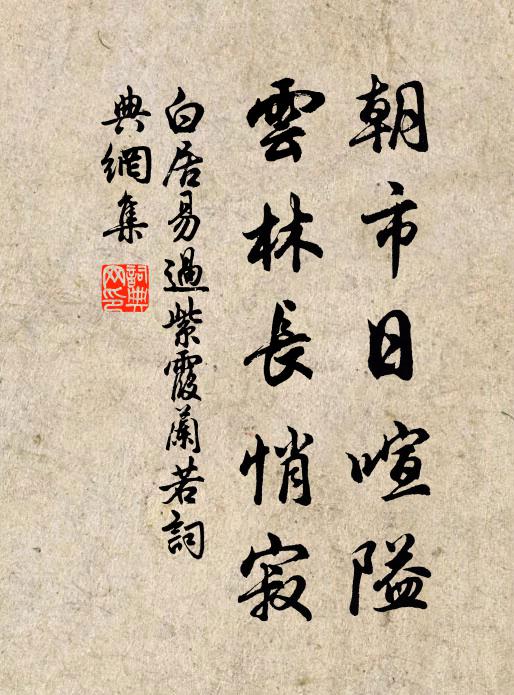 朝市日喧隘
雲林長悄寂
白居易過紫霞蘭若詞
典網集
詞典網印